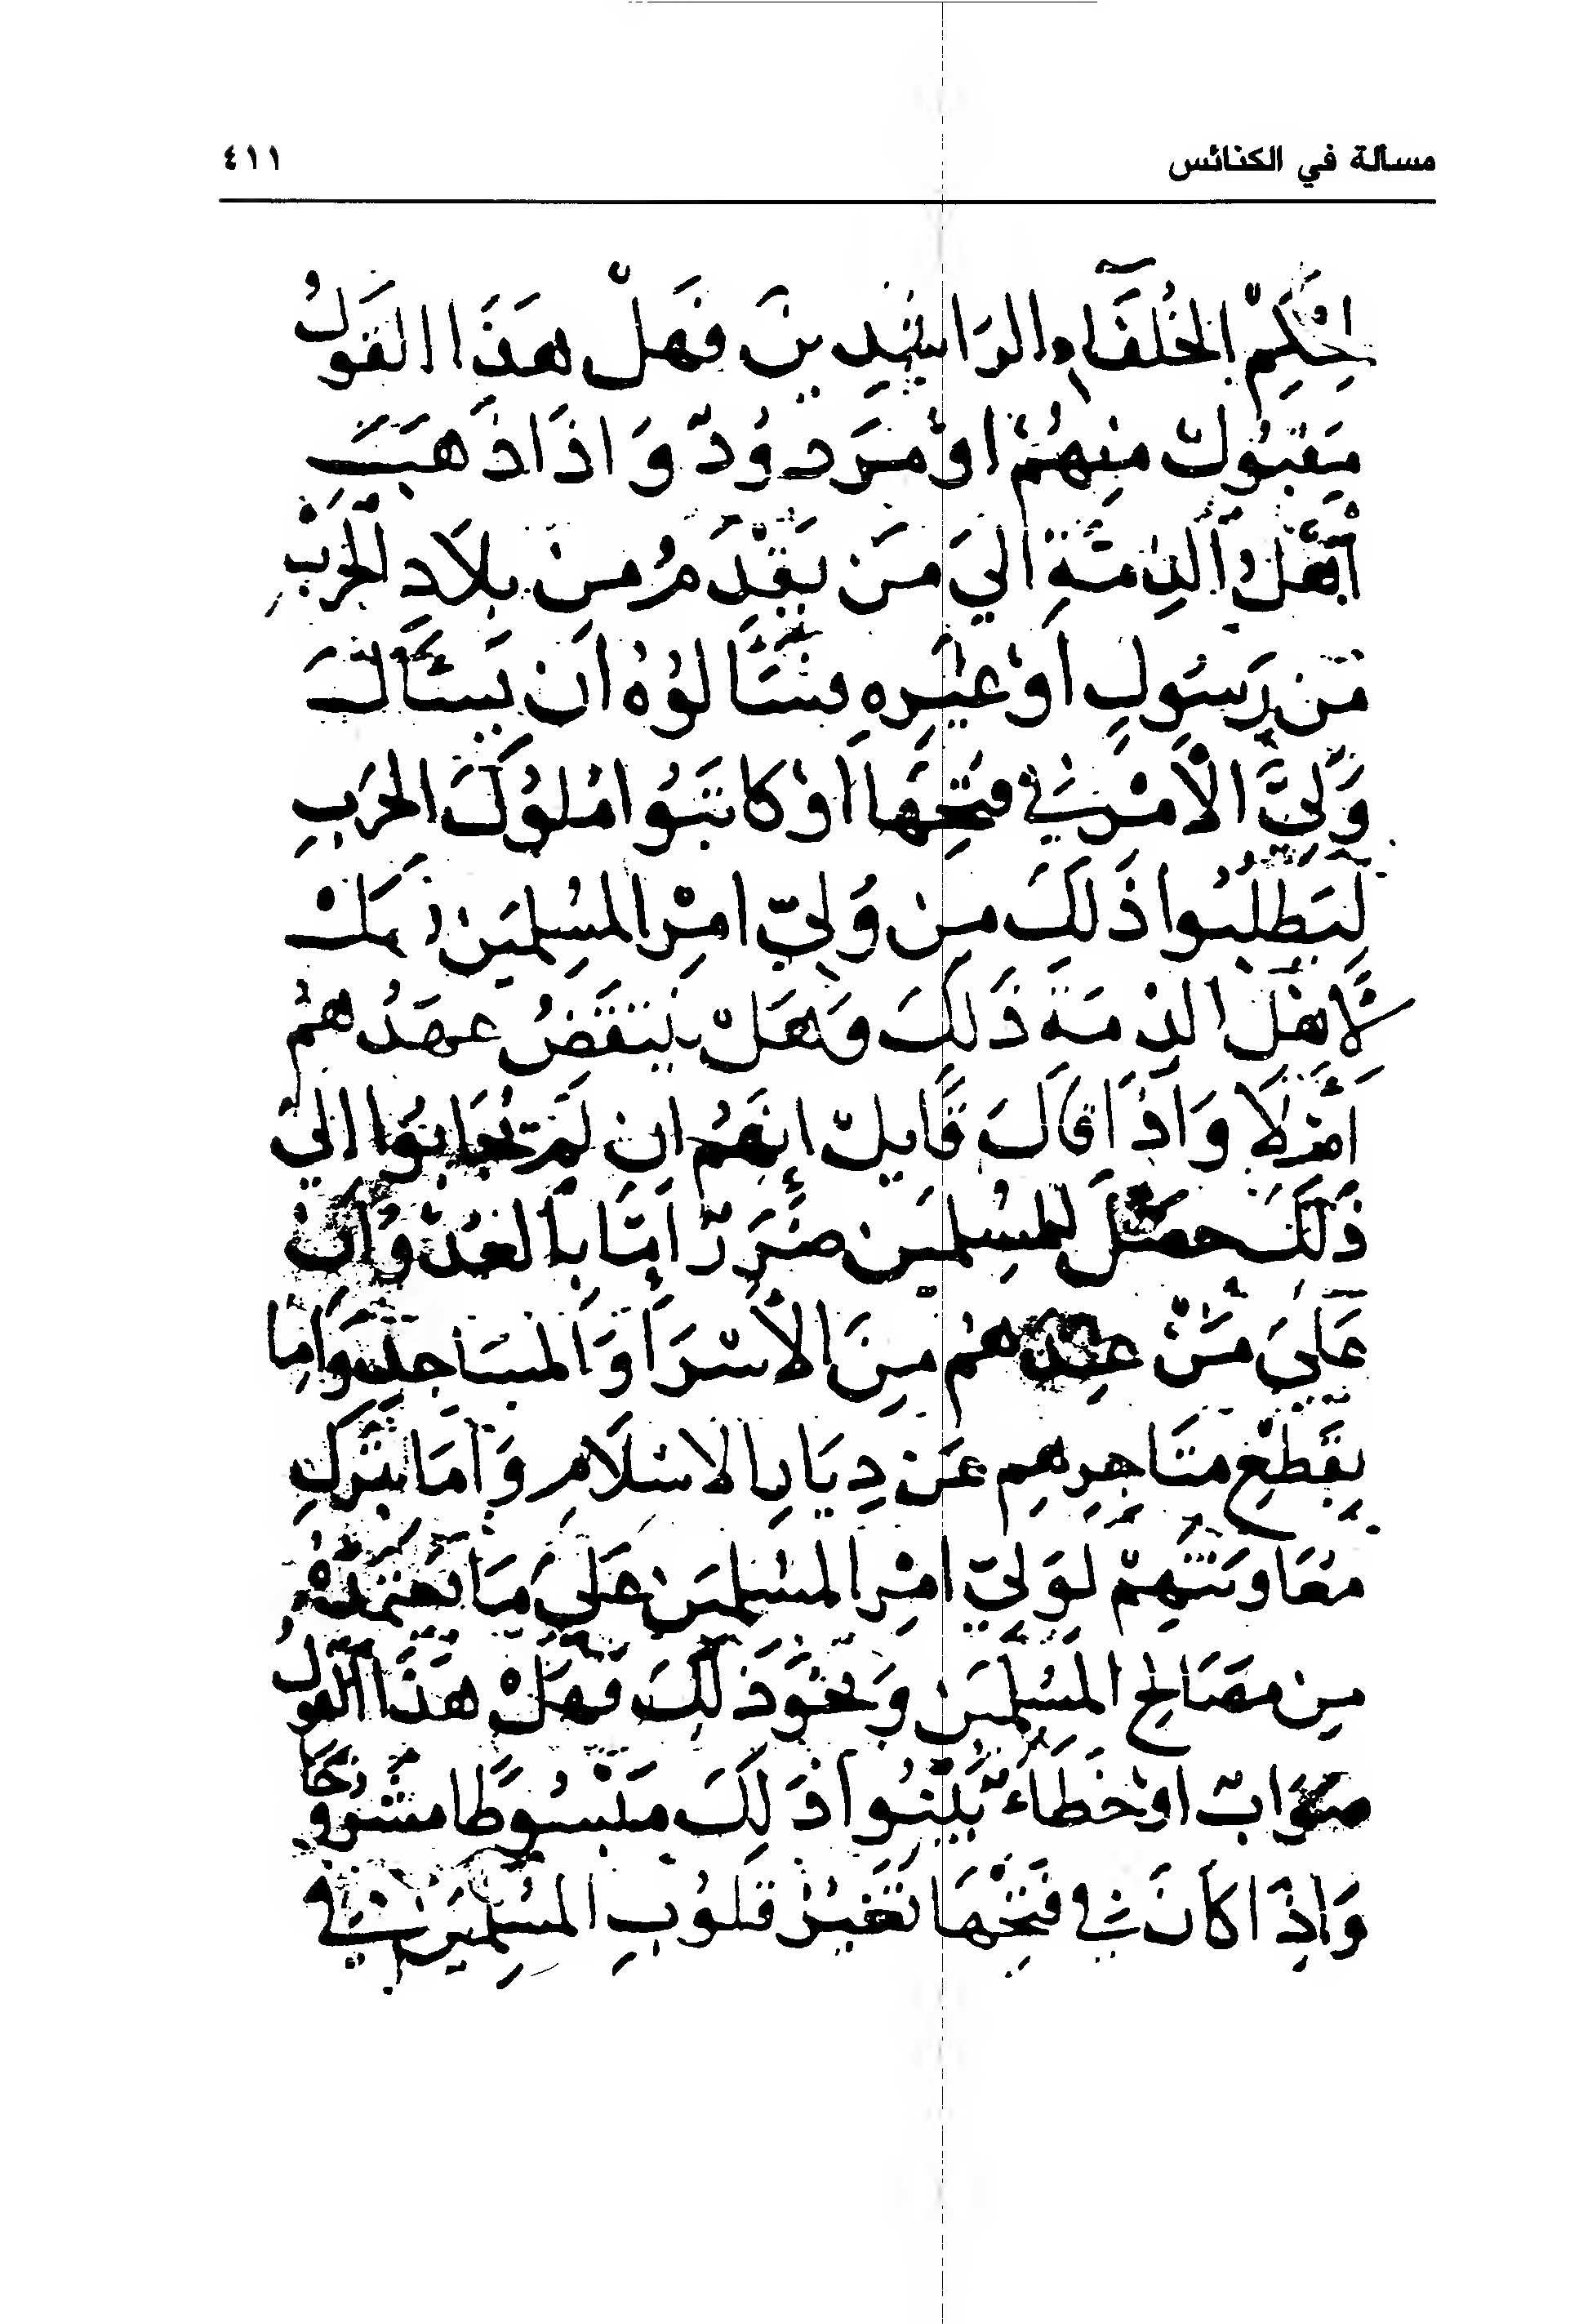 مسألة في الكنائس ٤١١
لِحُكْمِ الخُلَفَاءِ الرَاشِدِينَ فَهَلْ هَذَا القَولُ
مَقْبُولٌ مِنهُمْ اوْ مَرَدوُدٌ وَاذَا ذَهَبَ
أَهْلُ الذِمَّةِ اليَ مَن يَقْدَمُ مِن بِلَادِ الحَربِ
مَن رَسُولٍ اوْ غَيْرِهِ يسَّالوُهُ ان يَسْأَلَ
وَلِيَّ الأمْرِ في فتحِهَا اوْ كاتَبُوا مُلوُكَ الحَربِ
لِيَطلُبُوا ذَلِكَ مِن وَلِيّ امْرِ المسُلِمَينَ
لأهْل الذِمَة ذَلكَ وَهَلْ يَنتَقضُ عهَدُهمُ
أمْ لا وَاذَا قَالَ قَايلٌ انهَمُ ان لَمْ يُجَابوُا اليَ
ذَلَكَ حصَلَ للمسُلمينَ ضَرَرٌ امّا بالعُدْوَانِ
عَلىَ مَنْ عِندهمُ مِنَ الأسْرَا وَالمسَاجِدِ وَامِا
بِقَطْعِ مَتَاجِرِهِم عَن دِيَارِ الاسْلَامِ وَامَا بتَركِ
مُعَاوَنَتهِمْ لوَلِيّ امْرِ المسْلِمَينَ عَليَ مَا يَعتمَدُهُ
مِن مَصَالح المسْلِمَينِ وَنَحْوَ ذَلِكَ فَهَلْ هَذَا القَولُ
صَوَابٌ اوْ خَطَاءٌ بَيّنُوا ذَلِكَ مَبْسُوطًا مشْرُوحًا
وَاذَا كانَ في فَتحِهَا تَغَيُّرُ قلوُبِ المسْلِمَينَ في